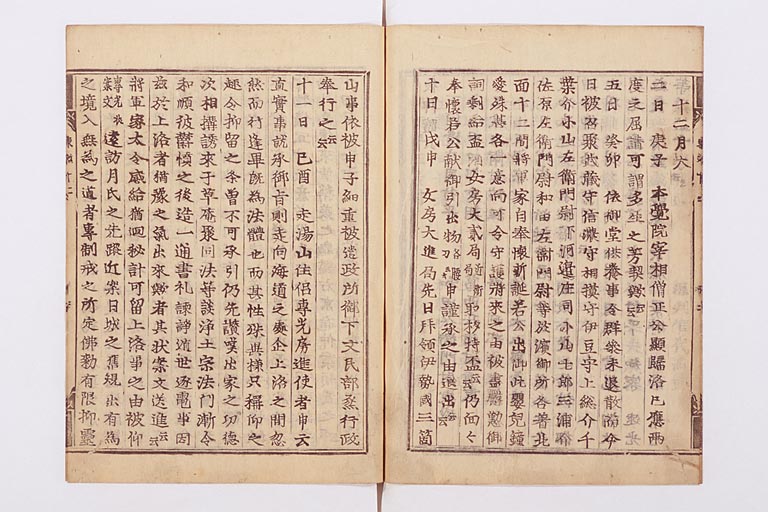 十二月大
二日 庚子 本覺院宰相僧正公顯歸洛已應兩
度之屈請可謂多生之芳契歟云云
五日 癸卯 供御堂供養事令群參未退散而今
日被召聚武藏守信濃守相摸守伊豆守上総介千
葉介小山左衛門尉下河邊庄司小山七郎三浦介
佐原左衛門尉和田左衛門尉等於濱御所各著北
面十二間將軍家自奉懷新誕若公出御此嬰兒鐘
愛殊甚各一意而可令守護將來之由被盡慇懃御
詞剩給盃酒女房大貳局近衛局取杓持盃云云仍面々
奉懷若公献御引出物各腰刀申謹承之由退出云云
十日 戊申 女房大進局先日拜領伊勢國三箇
山事依被申子細重被遣政所御下文民部丞行政
奉行之云云
十一日 己酉 走湯山住侶專光房進使者申云
直實事就承御旨則走向海道之處企上洛之間忽
然而行逢畢既為法體也而其性殊異樣只稱仰之
趣令抑留之条曽不可承引仍先讃嘆出家之功德
次相搆誘來于草庵聚同法等談浄土宗法門漸令
和順彼欝憤之後造一通書札諫諍遁世逐電事因
茲於上洛者猶豫之氣出來歟者其状案文送進云云
將軍家太令感給猶廻秘計可留上洛事之由被仰
專光状案文遠訪月氏之先蹤近案日域之舊規出有為
之境入無為之道者專制戒之所定佛勅有限抑靈